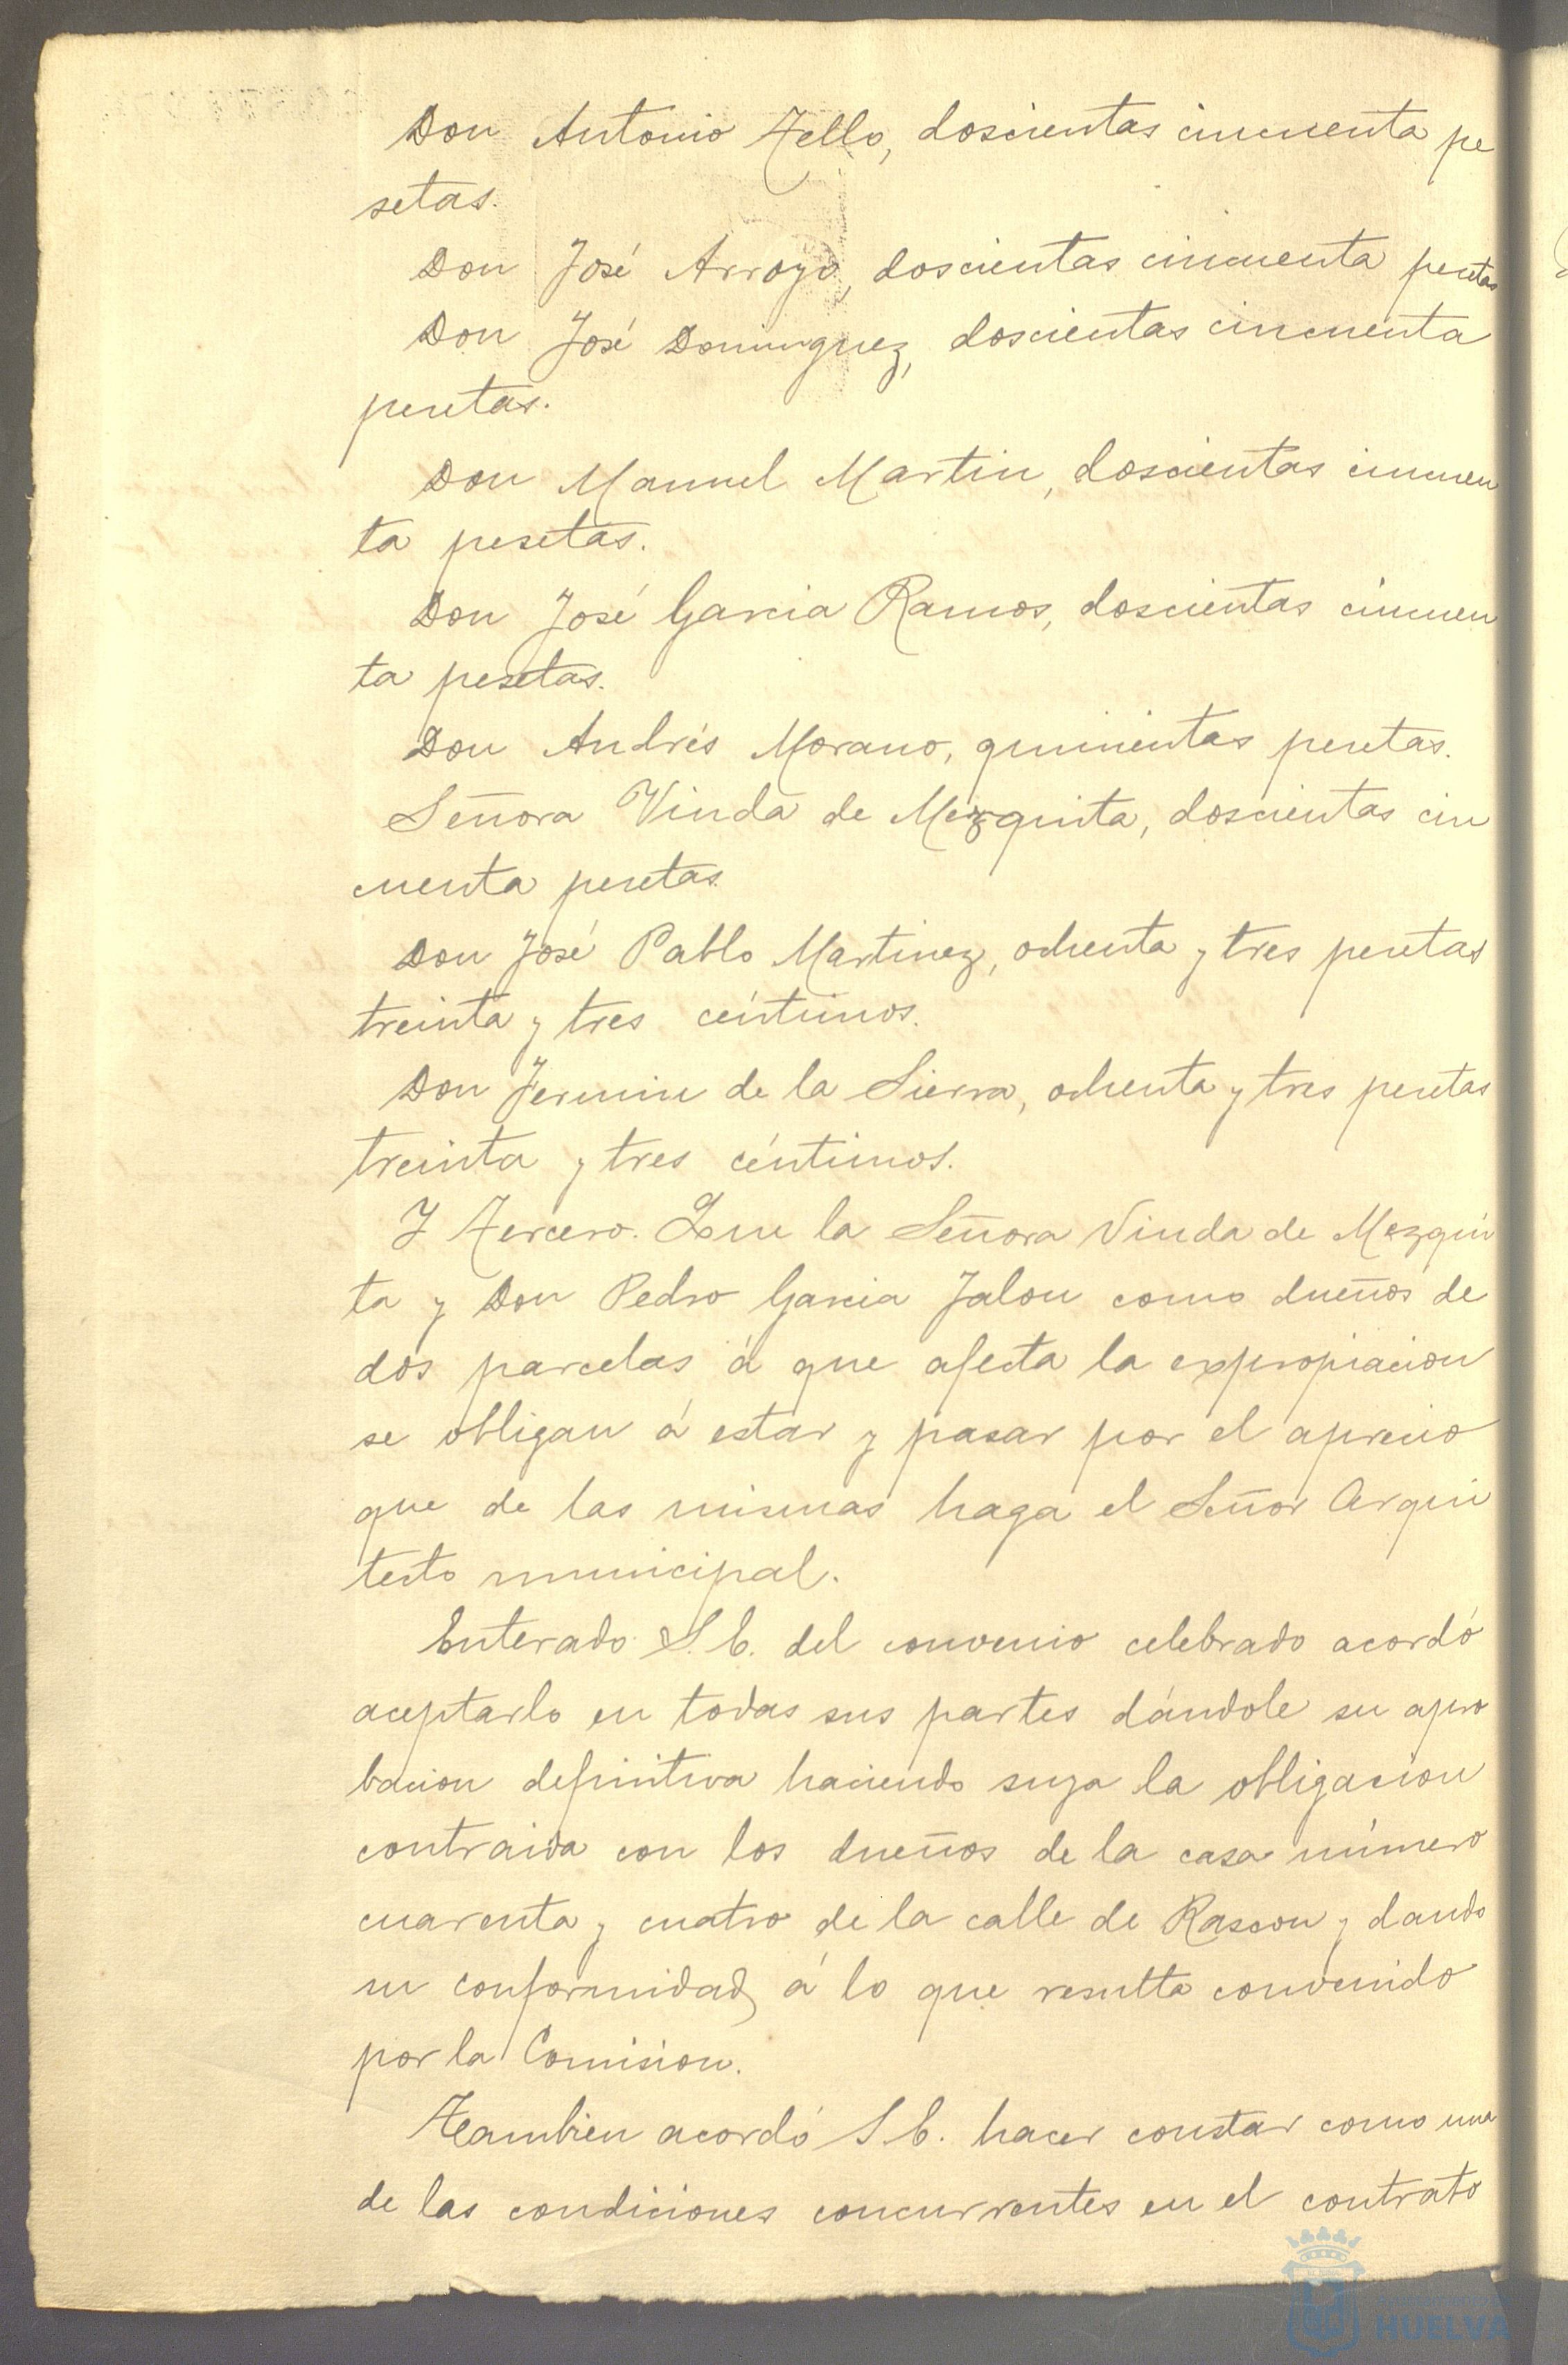 Don Antonio Tello, doscientas cincuenta pe
setas.
Don José Arroyo, doscientas cincuenta pesetas
Don José Dominguez, doscientas cincuenta
pesetas.
Don Manuel Martin, doscientas cincuen
ta pesetas.
Don José Garcia Ramos, doscientas cincuen
ta pesetas.
Don Andrés Morano, quinientas pesetas.
Señora Viuda de Mezquita, doscientas cin
cuenta pesetas.
Don José Pablo Martinez, ochenta y tres pesetas
treinta y tres céntimos.
Don Fermin de la Sierra, ochenta y tres pesetas
treinta y tres céntimos.
Y Tercero. Que la Señora Viuda de Mezqui
ta y Don Pedro Garcia Jalon como dueños de
dos parcelas á que afecta la expropiacion
se obligan á estar y pasar por el aprecio
que de las mismas haga el Señor Arqui
tecto municipal.
Enterado S.E. del convenio celebrado acordó
aceptarlo en todas sus partes dándole su apro
bacion definitiva haciendo suya la obligacion
contraida con los dueños de la casa número
cuarenta y cuatro de la calle de Rascon y dando
su conformidad á lo que resulta convenido
por la Comision.
Tambien acordó S.E. hacer constar como una
de las condiciones concurrentes en el contrato
HUELVA